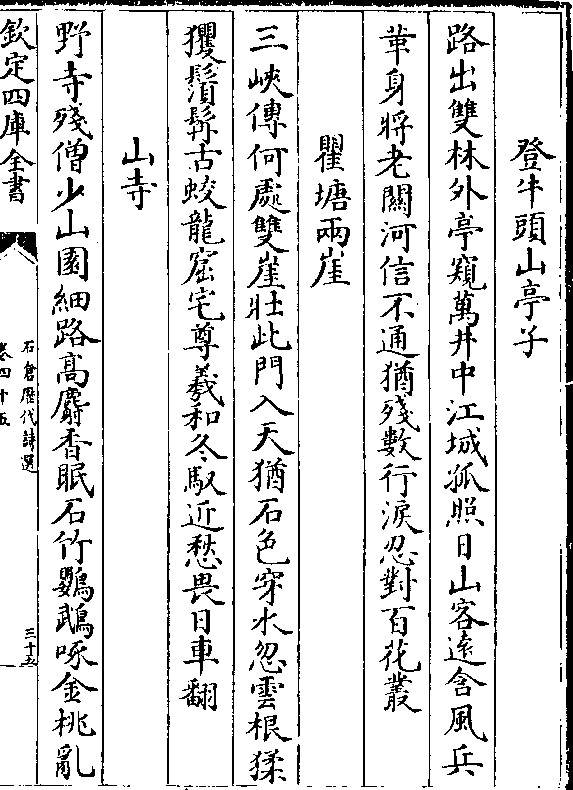 登牛頭山亭子
路出雙林外亭窺萬井中江城孤照日山客遠含風兵
革身將老關河信不通猶殘數行淚忍對百花叢
瞿塘兩崖
三峽傳何處雙崖壯此門入天猶石色穿水忽雲根猱
玃鬚髯古蛟龍窟宅尊羲和冬馭近愁畏日車翻
山寺
野寺殘僧少山園細路高麝香眠石竹鸚鵡啄金桃亂
欽定四庫全書
石倉歷代詩選
卷四十五
三十五